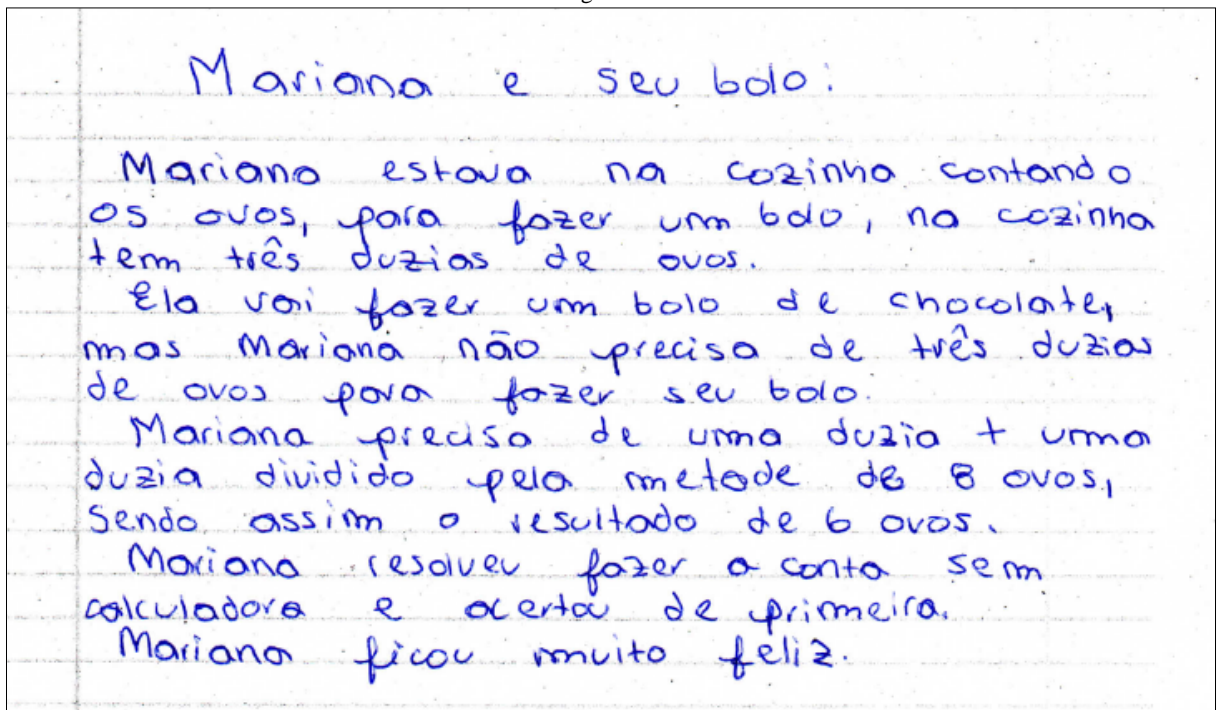 Mariana e seu bolo.
Mariana estava na cozinha contando
os ovos, para fazer um bolo, na cozinha
tem três duzias de ovos.
Ela vai fazer um bolo de chocolate,
mas Mariana não precisa de três duzias
de ovos para fazer seu bolo.
Mariana precisa de uma duzia + uma
duzia dividido pela metade de 8 ovos,
sendo assim o resultado de 6 ovos.
Mariana resolveu fazer a conta sem
calculadora e acertou de primeira.
Mariana ficou muito feliz.